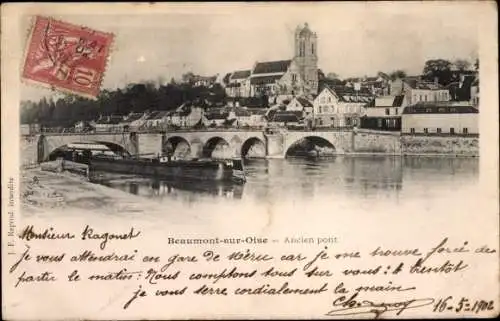 10
J. F. Reprod. interdite
BEAUMONT-SUR-OISE — Ancien pont
Monsieur Ragonet
je vous attendrai en gare de Béru car je me trouve forcé de
partir le matin. Nous comptons sur vous et à bientôt
je vous serre cordialement la main
16-5-1902